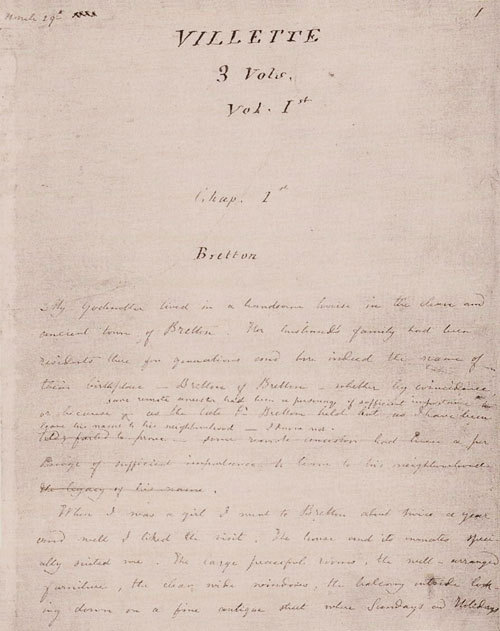 March 29th
1
VILLETTE
3 Vols.
Vol. Ist
Chap. 1st
Bretton
My Godmother lived in a handsome house in the clean and
ancient town of Bretton. Her husband's family had been
residents there for generations and bore indeed the name of
their birthplace — Bretton of Bretton — whether by coincidence
some remote ancestor had been a personage of sufficient importance to
or because
leave his name to his neighbourhood — I know not.
some remote ancestor had been a per
sonage of sufficient importance to leave to his neighbourhood
the legacy of his name.
When I was a girl I went to Bretton about twice a year
and well I liked the visit. The house and its inmates speci-
ally suited me. The large peaceful rooms, the well-arranged
furniture, the clear wide windows, the balcony outside look-
ing down on a fine antique street where Sundays and Holidays